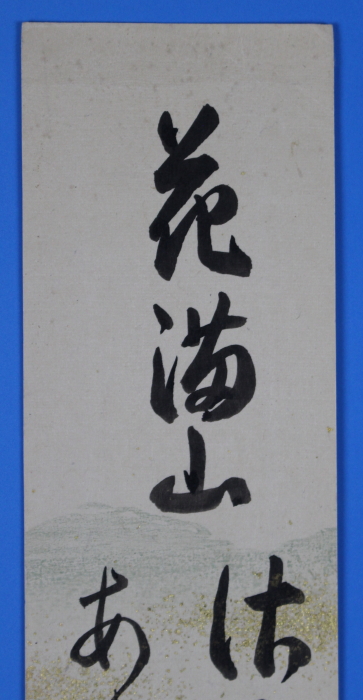 花満山
あ